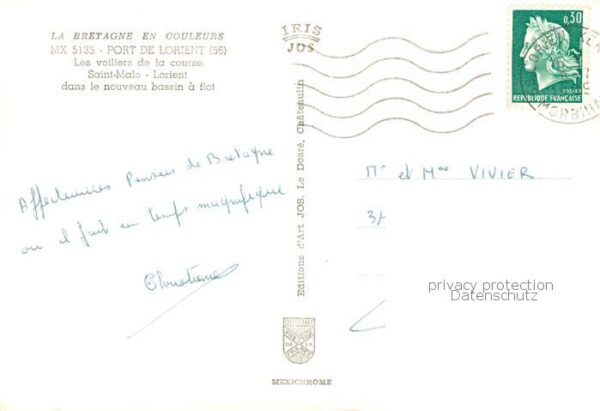 LA BRETAGNE EN COULEURS
MX 5135 - PORT DE LORIENT (56)
Les voiliers de la course
Saint-Malo - Lorient
dans le nouveau bassin à flot
Affectueuses Pensées de Bretagne
où il fait un temps magnifique
Christiane
IRIS
JOS
Editions d'Art JOS. Le Doaré, Châteaulin
MEXICHROME
0,30
REPUBLIQUE FRANÇAISE
MORBIHAN
Mr et Mme VIVIER
31
privacy protection
Datenschutz